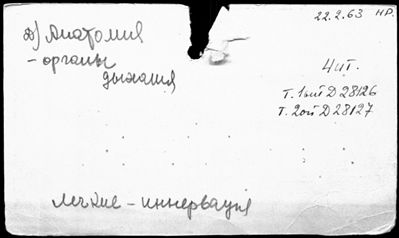 22.2.63 НР.
а) Анатомия
- органы
дыхания
Чит.
Т. 1ый D 28126
Т. 2ой D 28127
легкие - иннервация